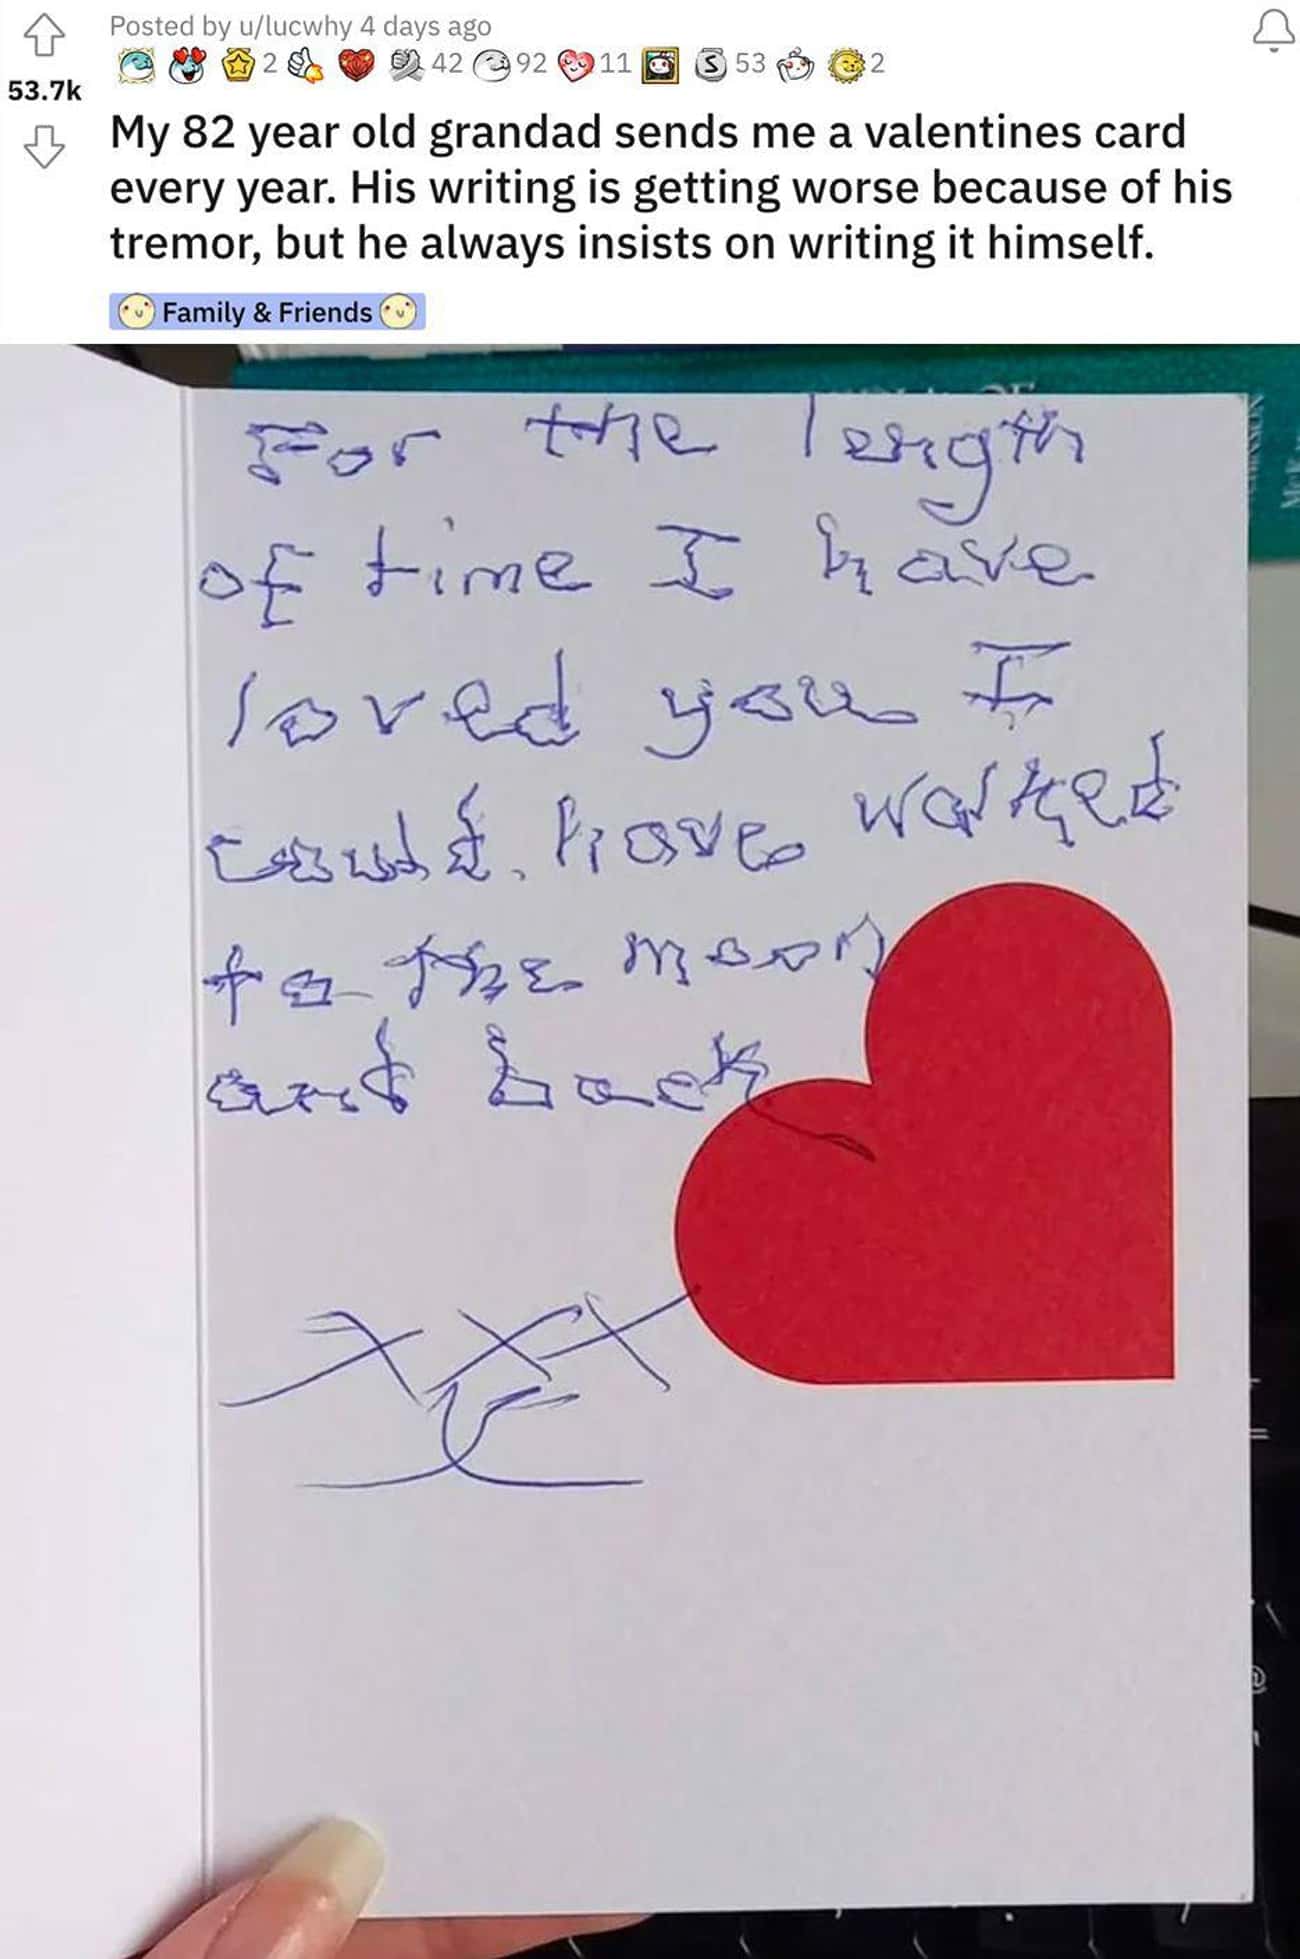 Posted by u/lucwhy 4 days ago
2 42 92 11 53 2
53.7k
My 82 year old grandad sends me a valentines card
every year. His writing is getting worse because of his
tremor, but he always insists on writing it himself.
Family & Friends
For the length
of time I have
loved you I
could have walked
to the moon
and back
xxx
x